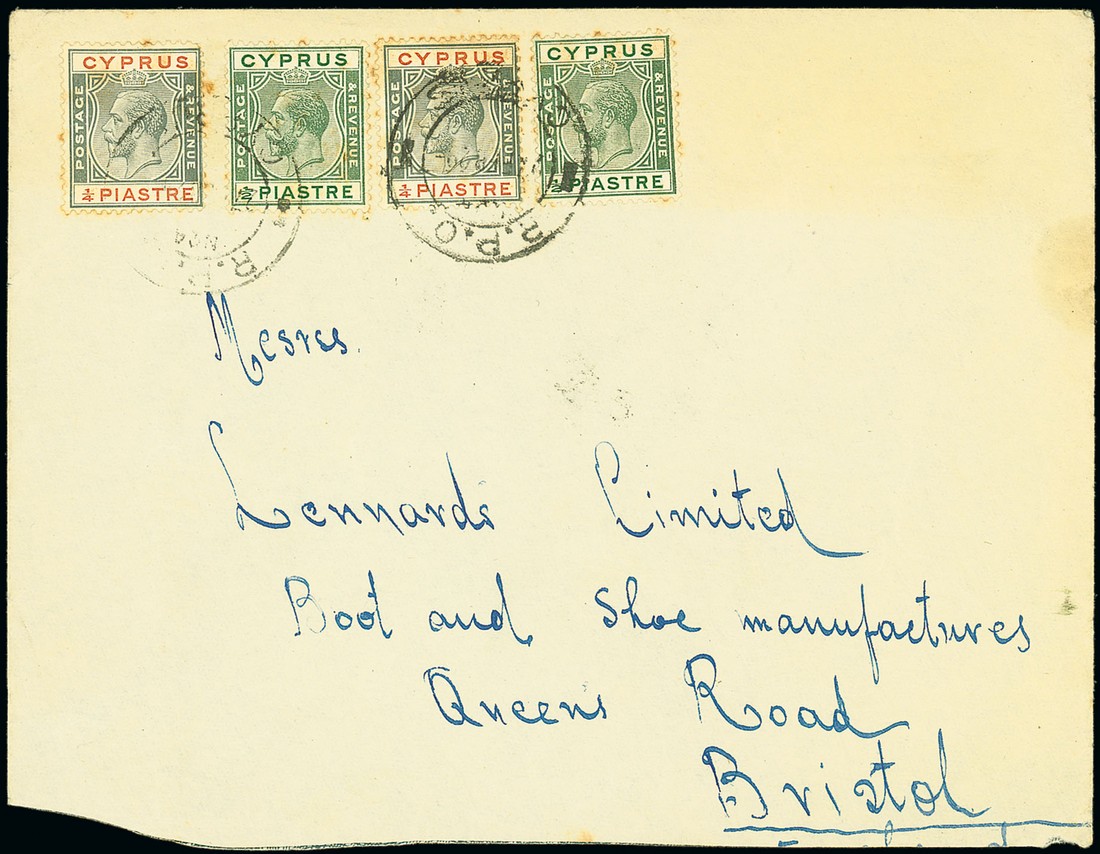 CYPRUS CYPRUS CYPRUS CYPRUS
POSTAGE & REVENUE POSTAGE & REVENUE POSTAGE & REVENUE POSTAGE & REVENUE
¼ PIASTRE ½ PIASTRE ¼ PIASTRE ½ PIASTRE
R.P.O.
Mesrss.
Lennards Limited
Boot and Shoe manufactures
Queens Road
Bristol